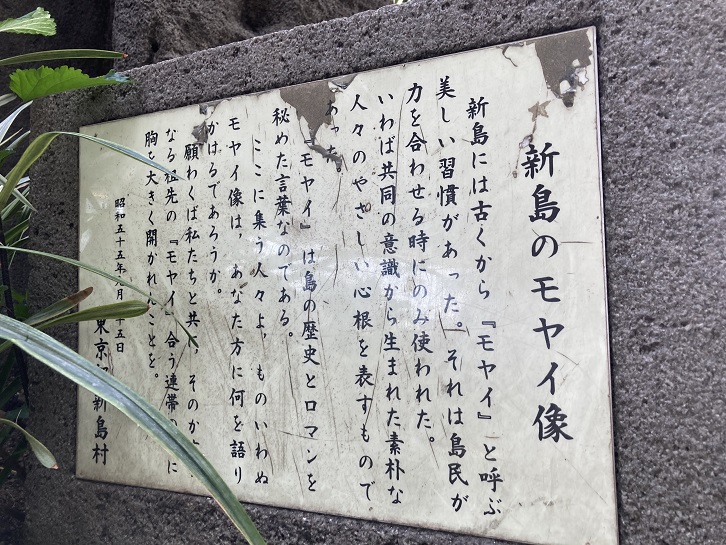 新島のモヤイ像
新島には古くから『モヤイ』と呼ぶ
美しい習慣があった。それは島民が
力を合わせる時にのみ使われた。
いわば共同の意識から生まれた素朴な
人々のやさしい心根を表すもので
あった。
『モヤイ』は島の歴史とロマンを
秘めた言葉なのである。
ここに集う人々よ、ものいわぬ
モヤイ像は、あなた方に何を語り
かけるであろうか。
願わくば私たちと共に、そのか
なる祖先の『モヤイ』合う連帯の に
胸を大きく開かれんことを。
昭和五十五年九月 十五日
東京都新島村